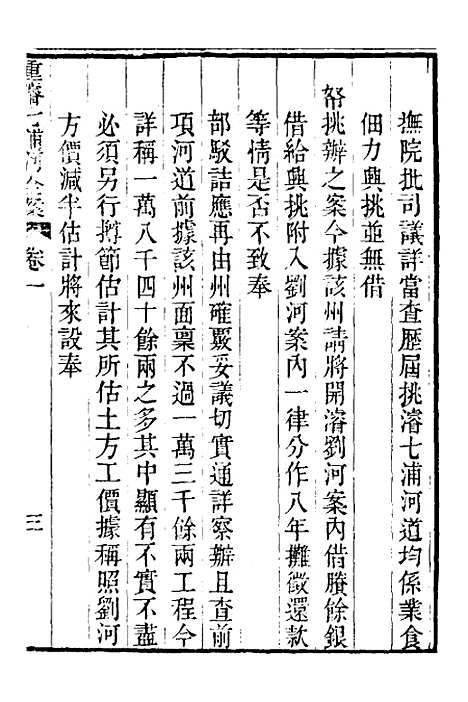 撫院批司議詳當查歷屆挑濬七浦河道均係業食
佃力興挑並無借
帑挑辦之案今據該州請將開濬劉河案內借賸餘銀
借給興挑附入劉河案內一律分作八年攤徵還款
等情是否不致奉
部駁詰應再由州確覈妥議切實通詳察辦且查前
項河道前據該州面稟不過一萬三千餘兩工程今
詳稱一萬八千四十餘兩之多其中顯有不實不盡
必須另行撙節估計其所估土方工價據稱照劉河
方價減半估計將來設奉
重濬七浦河全案 卷一 三